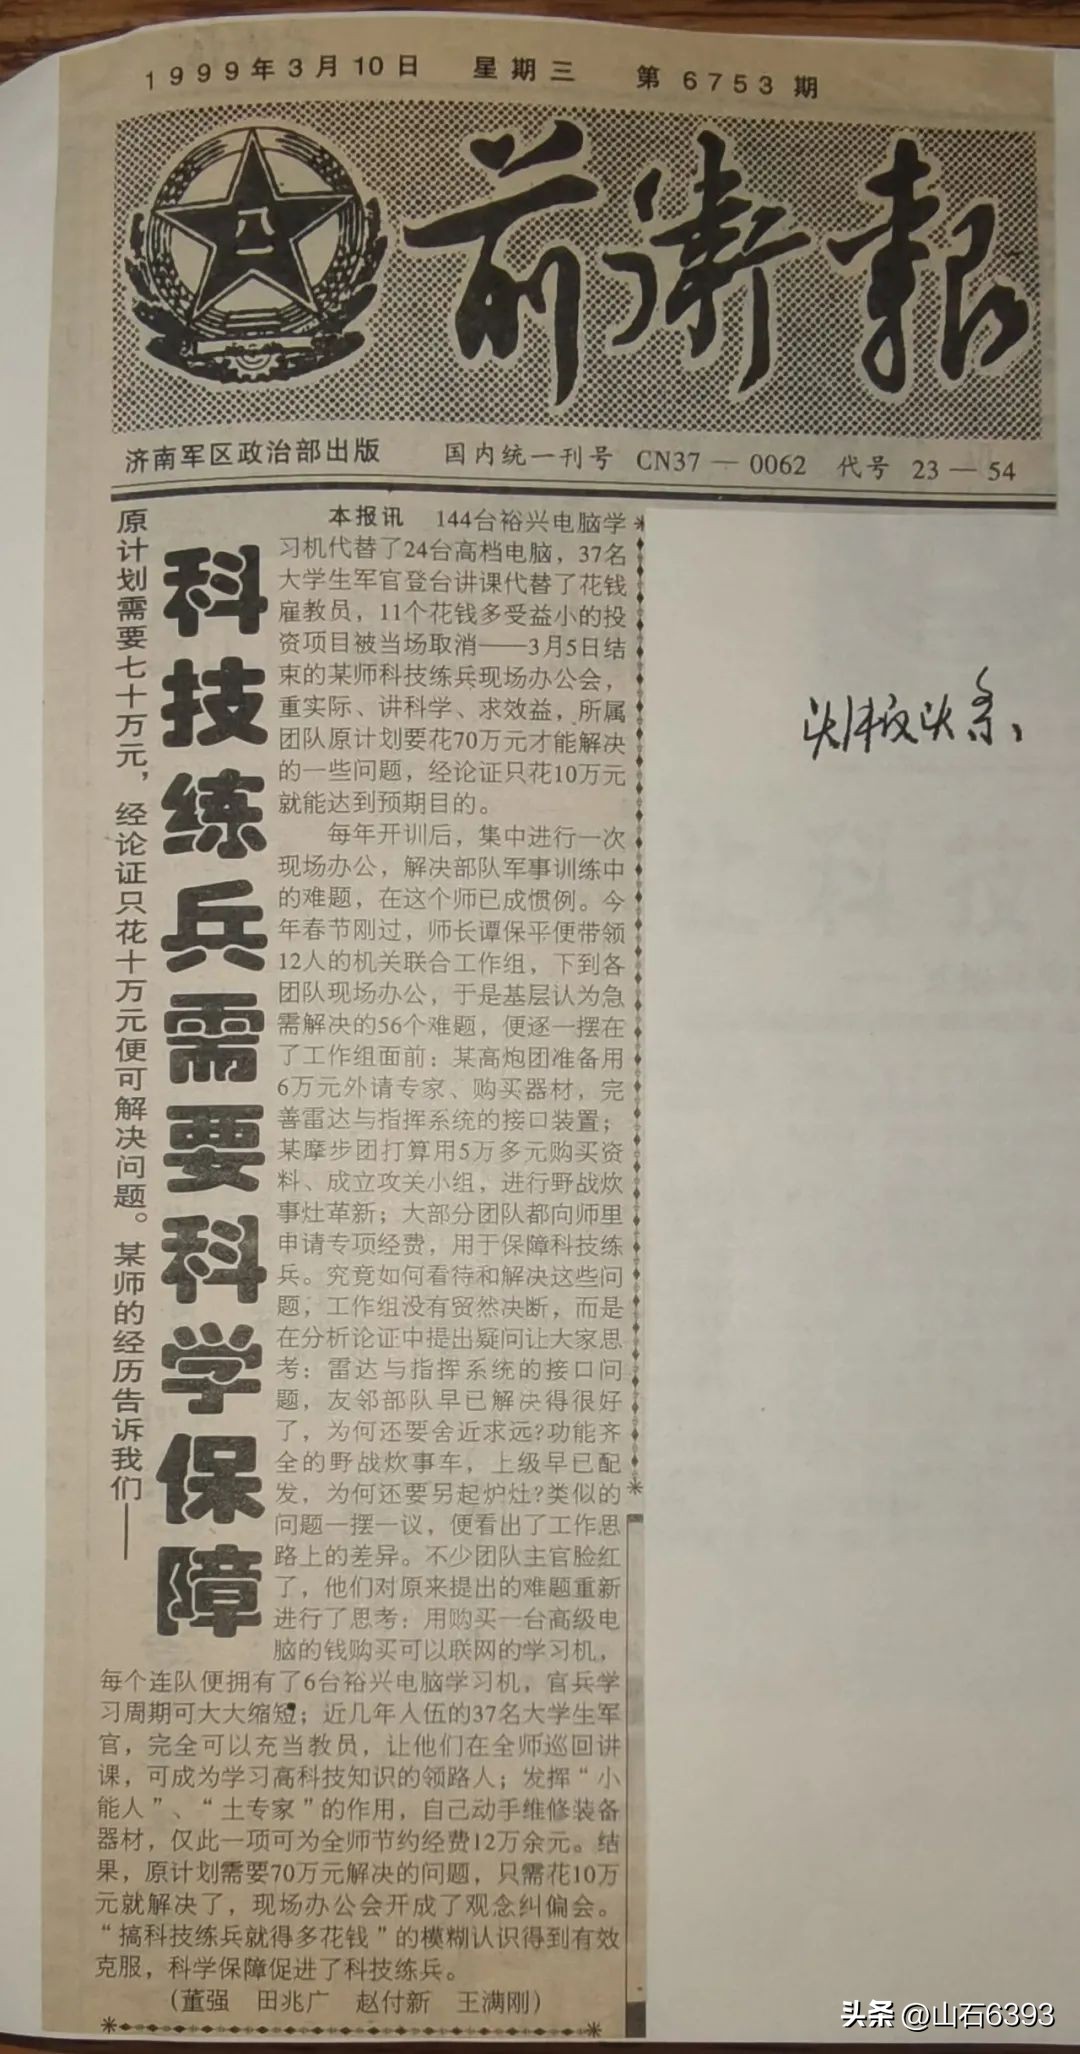 1999年3月10日 星期三 第6753期
八一
前卫报
济南军区政治部出版 国内统一刊号 CN37—0062 代号 23—54
原计划需要七十万元，经论证只花十万元便可解决问题。某师的经历告诉我们——
科技练兵需要科学保障
本报讯 144台裕兴电脑学
习机代替了24台高档电脑，37名
大学生军官登台讲课代替了花钱
雇教员，11个花钱多受益小的投
资项目被当场取消——3月5日结
束的某师科技练兵现场办公会，
重实际、讲科学、求效益，所属
团队原计划要花70万元才能解决
的一些问题，经论证只花10万元
就能达到预期目的。
每年开训后，集中进行一次
现场办公，解决部队军事训练中
的难题，在这个师已成惯例。今
年春节刚过，师长谭保平便带领
12人的机关联合工作组，下到各
团队现场办公，于是基层认为急
需解决的56个难题，便逐一摆在
了工作组面前：某高炮团准备用
6万元外请专家、购买器材，完
善雷达与指挥系统的接口装置；
某摩步团打算用5万多元购买资
料、成立攻关小组，进行野战炊
事灶革新；大部分团队都向师里
申请专项经费，用于保障科技练
兵。究竟如何看待和解决这些问
题，工作组没有贸然决断，而是
在分析论证中提出疑问让大家思
考：雷达与指挥系统的接口问
题，友邻部队早已解决得很好
了，为何还要舍近求远?功能齐
全的野战炊事车，上级早已配
发，为何还要另起炉灶?类似的
问题一摆一议，便看出了工作思
路上的差异。不少团队主官脸红
了，他们对原来提出的难题重新
进行了思考：用购买一台高级电
脑的钱购买可以联网的学习机，
每个连队便拥有了6台裕兴电脑学习机，官兵学
习周期可大大缩短；近几年入伍的37名大学生军
官，完全可以充当教员，让他们在全师巡回讲
课，可成为学习高科技知识的领路人；发挥“小
能人”、“土专家”的作用，自己动手维修装备
器材，仅此一项可为全师节约经费12万余元。结
果，原计划需要70万元解决的问题，只需花10万
元就解决了，现场办公会开成了观念纠偏会。
“搞科技练兵就得多花钱”的模糊认识得到有效
克服，科学保障促进了科技练兵。
（董强 田兆广 赵付新 王满刚）
头条 @山石6393